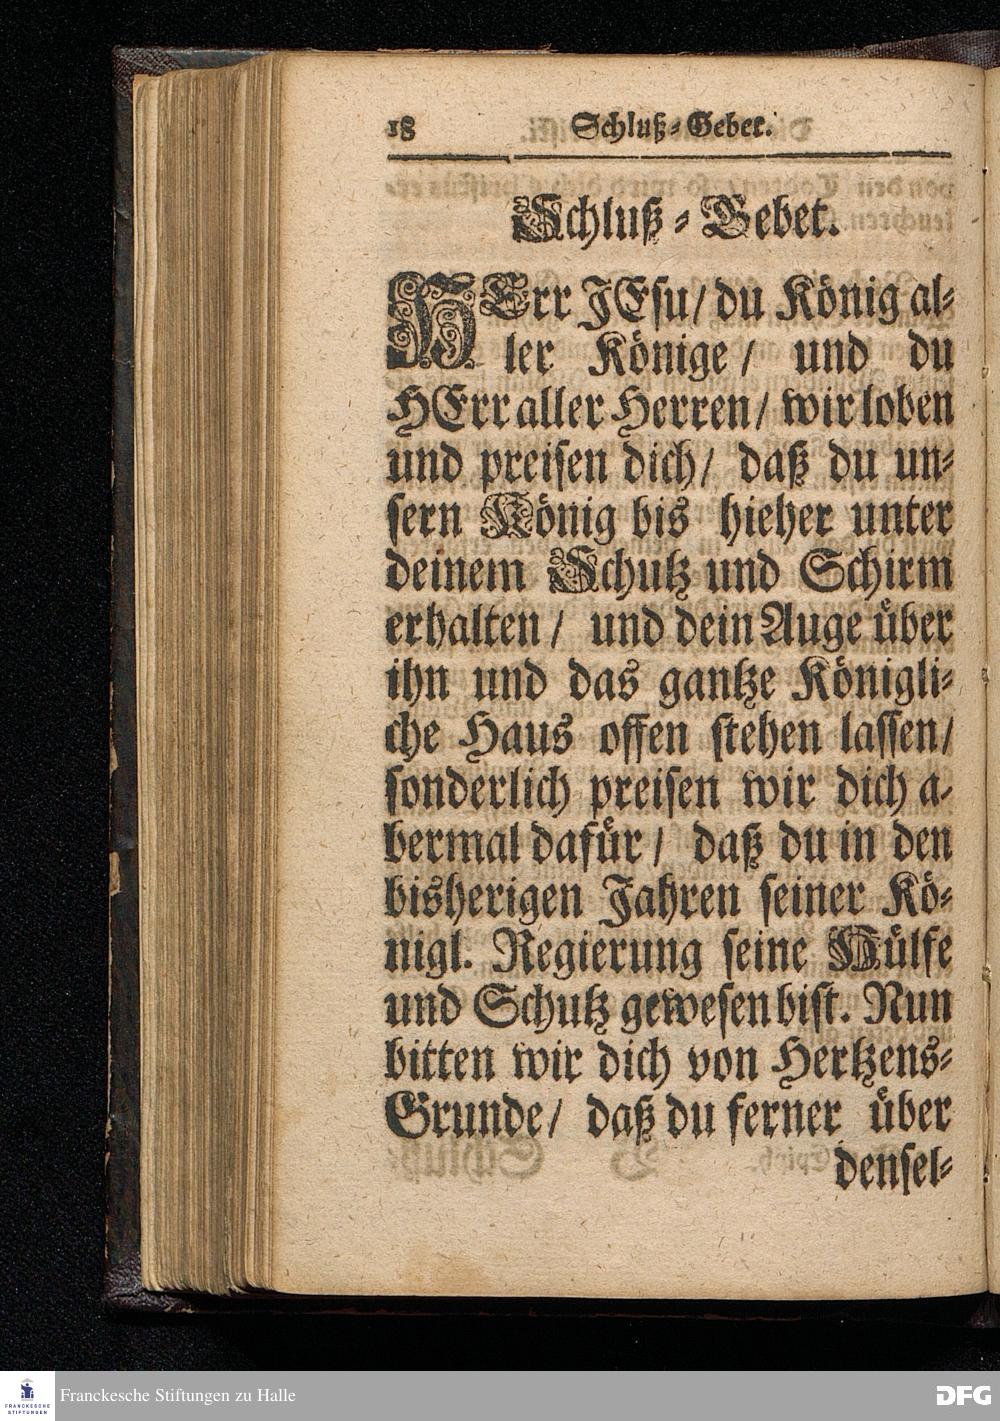 18 Schluß-Gebet.
Schluß-Gebet.
HErr JEsu/ du König al-
ler Könige/ und du
HErr aller Herren/ wir loben
und preisen dich/ daß du un-
sern König bis hieher unter
deinem Schutz und Schirm
erhalten/ und dein Auge über
ihn und das gantze Königli-
che Haus offen stehen lassen/
sonderlich preisen wir dich a-
bermal dafür/ daß du in den
bisherigen Jahren seiner Kö-
nigl. Regierung seine Hülfe
und Schutz gewesen bist. Nun
bitten wir dich von Hertzens-
Grunde/ daß du ferner über
densel-
FRANCKESCHE
STIFTUNGEN
Franckesche Stiftungen zu Halle
DFG